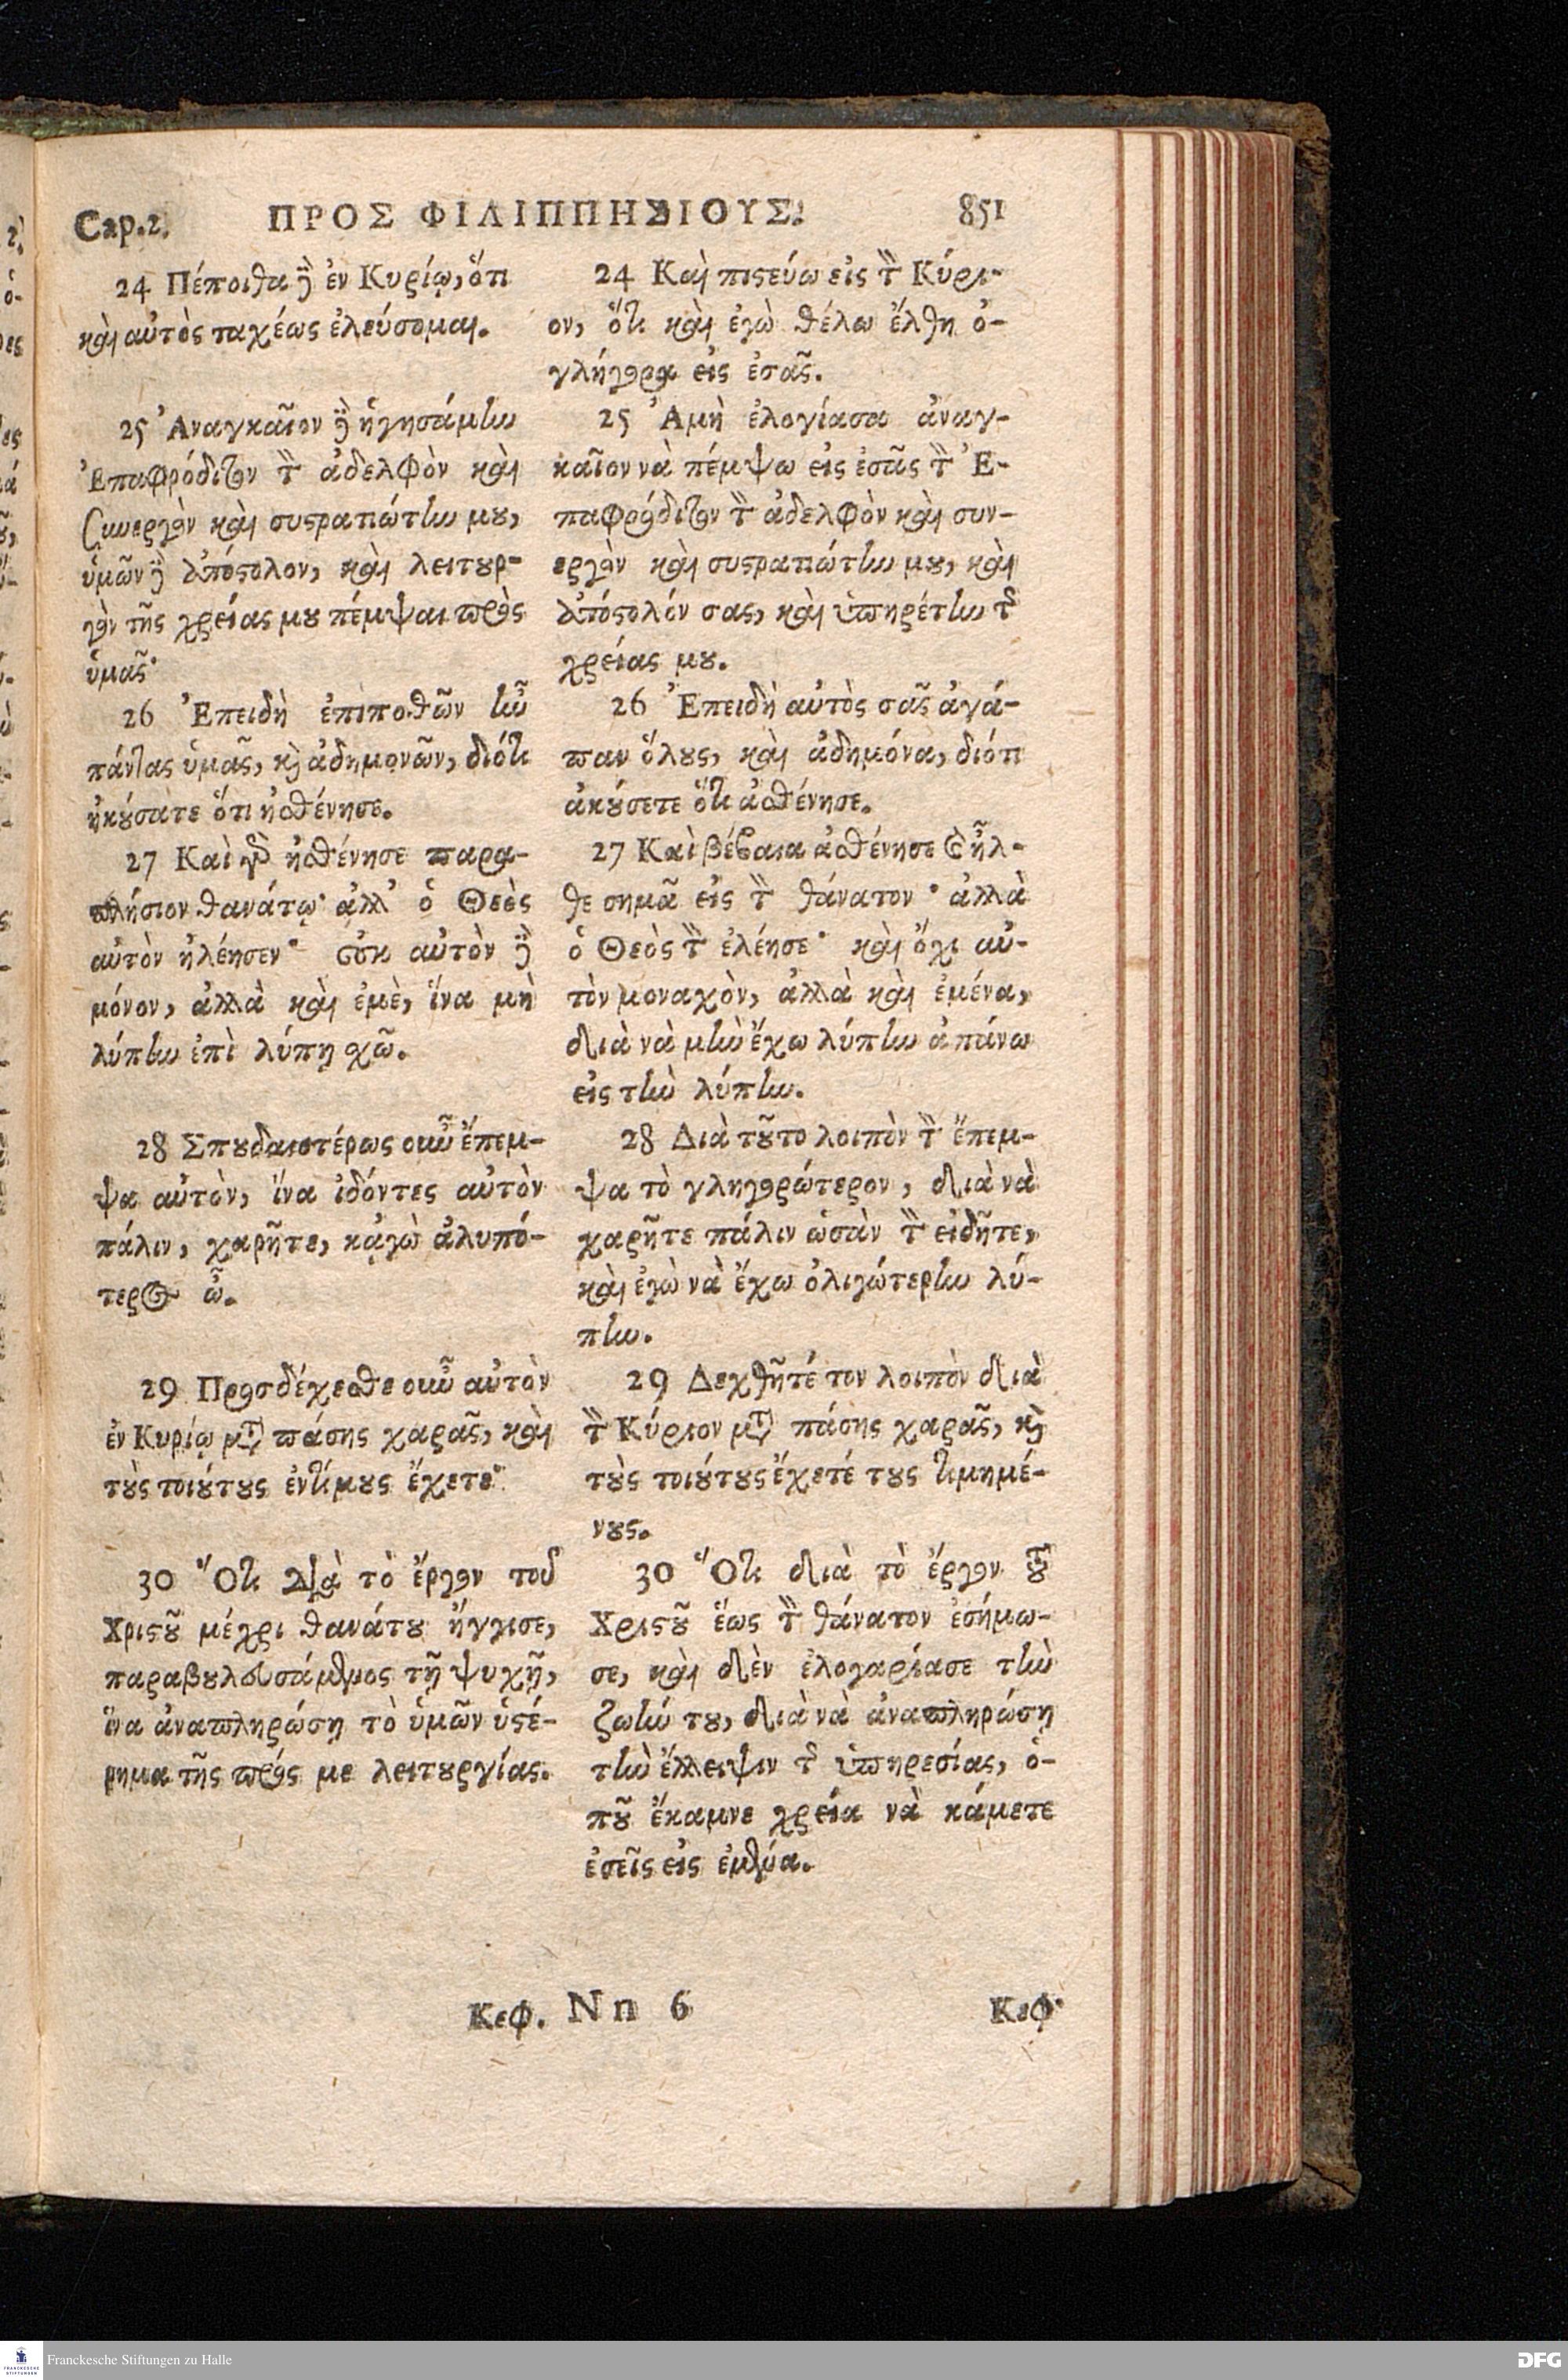 Cap.2. ΠΡΟΣ ΦΙΛΙΠΠΗΣΙΟΥΣ. 851
24 Πέποιθα δὲ ἐν Κυρίῳ, ὅτι
καὶ αὐτὸς ταχέως ἐλεύσομαι.
25 Ἀναγκαῖον δὲ ἡγησάμην
Ἐπαφρόδιτον τὸν ἀδελφὸν καὶ
συνεργὸν καὶ συστρατιώτην μου,
ὑμῶν δὲ ἀπόστολον, καὶ λειτουρ-
γὸν τῆς χρείας μου πέμψαι πρὸς
ὑμᾶς·
26 Ἐπειδὴ ἐπιποθῶν ἦν
πάντας ὑμᾶς, καὶ ἀδημονῶν, διότι
ἠκούσατε ὅτι ἠσθένησε.
27 Καὶ γὰρ ἠσθένησε παρα-
πλήσιον θανάτῳ· ἀλλ' ὁ Θεὸς
αὐτὸν ἠλέησεν· οὐκ αὐτὸν δὲ
μόνον, ἀλλὰ καὶ ἐμὲ, ἵνα μὴ
λύπην ἐπὶ λύπῃ σχῶ.
28 Σπουδαιοτέρως οὖν ἔπεμ-
ψα αὐτὸν, ἵνα ἰδόντες αὐτὸν
πάλιν, χαρῆτε, κᾀγὼ ἀλυπό-
τερος ὦ.
29 Προσδέχεσθε οὖν αὐτὸν
ἐν Κυρίῳ μετὰ πάσης χαρᾶς, καὶ
τοὺς τοιούτους ἐντίμους ἔχετε·
30 Ὅτι διὰ τὸ ἔργον τοῦ
Χριστοῦ μέχρι θανάτου ἤγγισε,
παραβουλευσάμενος τῇ ψυχῇ,
ἵνα ἀναπληρώσῃ τὸ ὑμῶν ὑστέ-
ρημα τῆς πρός με λειτουργίας.
24 Καὶ πιστεύω εἰς τὸν Κύρι-
ον, ὅτι καὶ ἐγὼ θέλω ἔλθῃ ὀ-
γλήγορα εἰς ἐσᾶς.
25 Ἀμὴ ἐλογίασα ἀναγ-
καῖον νὰ πέμψω εἰς ἐσᾶς τὸν Ἐ-
παφρόδιτον τὸν ἀδελφὸν καὶ συν-
εργὸν καὶ συστρατιώτην μου, καὶ
ἀπόστολόν σας, καὶ ὑπηρέτην τῆς
χρείας μου.
26 Ἐπειδὴ αὐτὸς σᾶς ἀγά-
παν ὅλους, καὶ ἀδημόνα, διότι
ἀκούσετε ὅτι ἀσθένησε.
27 Καὶ βέβαια ἀσθένησε καὶ ἦλ-
θε σημᾶ εἰς τὸν θάνατον· ἀλλὰ
ὁ Θεὸς τὸν ἐλέησε· καὶ ὄχι αὐ-
τὸν μοναχὸν, ἀλλὰ καὶ ἐμένα,
διὰ νὰ μὴν ἔχω λύπην ἀπάνω
εἰς τὴν λύπην.
28 Διὰ τοῦτο λοιπὸν τὸν ἔπεμ-
ψα τὸ γληγορώτερον, διὰ νὰ
χαρῆτε πάλιν ὡσὰν τὸν εἰδῆτε,
καὶ ἐγὼ νὰ ἔχω ὀλιγώτερην λύ-
πην.
29 Δεχθῆτέ τον λοιπὸν διὰ
τὸν Κύριον μετὰ πάσης χαρᾶς, καὶ
τοὺς τοιούτους ἔχετέ τους τιμημέ-
νους.
30 Ὅτι διὰ τὸ ἔργον τοῦ
Χριστοῦ ἕως τὸν θάνατον ἐσήμω-
σε, καὶ δὲν ἐλογαρίασε τὴν
ζωήν του, διὰ νὰ ἀναπληρώσῃ
τὴν ἔλλειψιν τῆς ὑπηρεσίας, ὁ-
ποῦ ἔκαμνε χρεία νὰ κάμετε
ἐσεῖς εἰς ἐμένα.
Κεφ. Nn 6 Κεφ.
Franckesche Stiftungen zu Halle
DFG